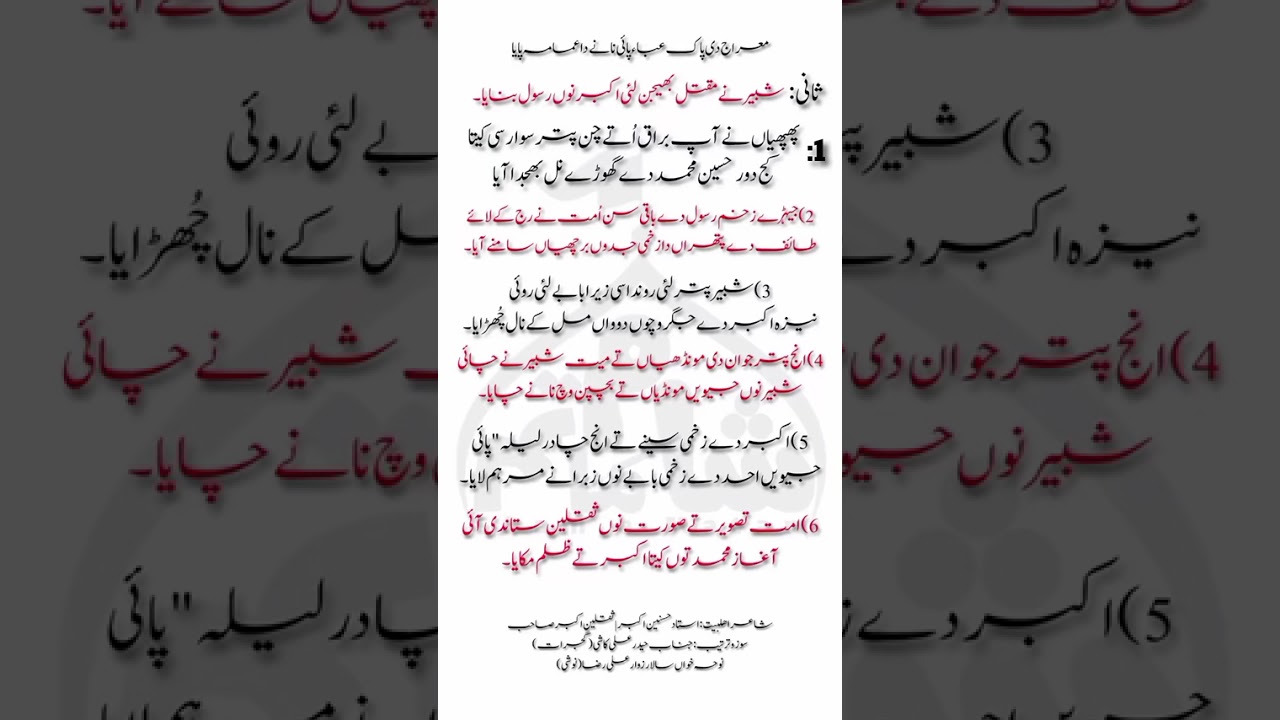 معراج دی پاک عباء پائی نانے دا عمامہ پایا
ثانی: شبیر نے مقتل بھیجن لئی اکبر نوں رسول بنایا۔
1: پھپھیاں نے آپ براق اُتے چن پتر سوار سی کیتا
کج دور حسین محمد دے گھوڑے نل بھجدا آیا
2) جیہڑے زخم رسول دے باقی سن اُمت نے رج کے لائے
طائف دے پتھراں دا زخمی جدوں برچھیاں سامنے آیا۔
3) شبیر پتر لئی روندا سی زہرا بابے لئی روئی
نیزہ اکبر دے جگر وچوں دوواں مل کے نال چُھڑایا۔
4) انج پتر جوان دی مونڈھیاں تے میت شبیر نے چائی
شبیر نوں جیویں مونڈیاں تے بچپن وچ نانے چایا۔
5) اکبر دے زخمی سینے تے انج چادر لیلہ" پائی
جیویں احد دے زخمی بابے نوں زہرا نے مرہم لایا۔
6) امت تصویر تے صورت نوں ثقلین ستاندی آئی
آغاز محمد توں کیتا اکبر تے ظلم مکایا۔
شاعر اھلبیت: استاد حسنین اکبر | ثقلین اکبر صاحب
سوز و ترتیب: جناب حیدر علی کاشی (گجرات)
نوحہ خواں سالار زوار علی رضا (نوشی)